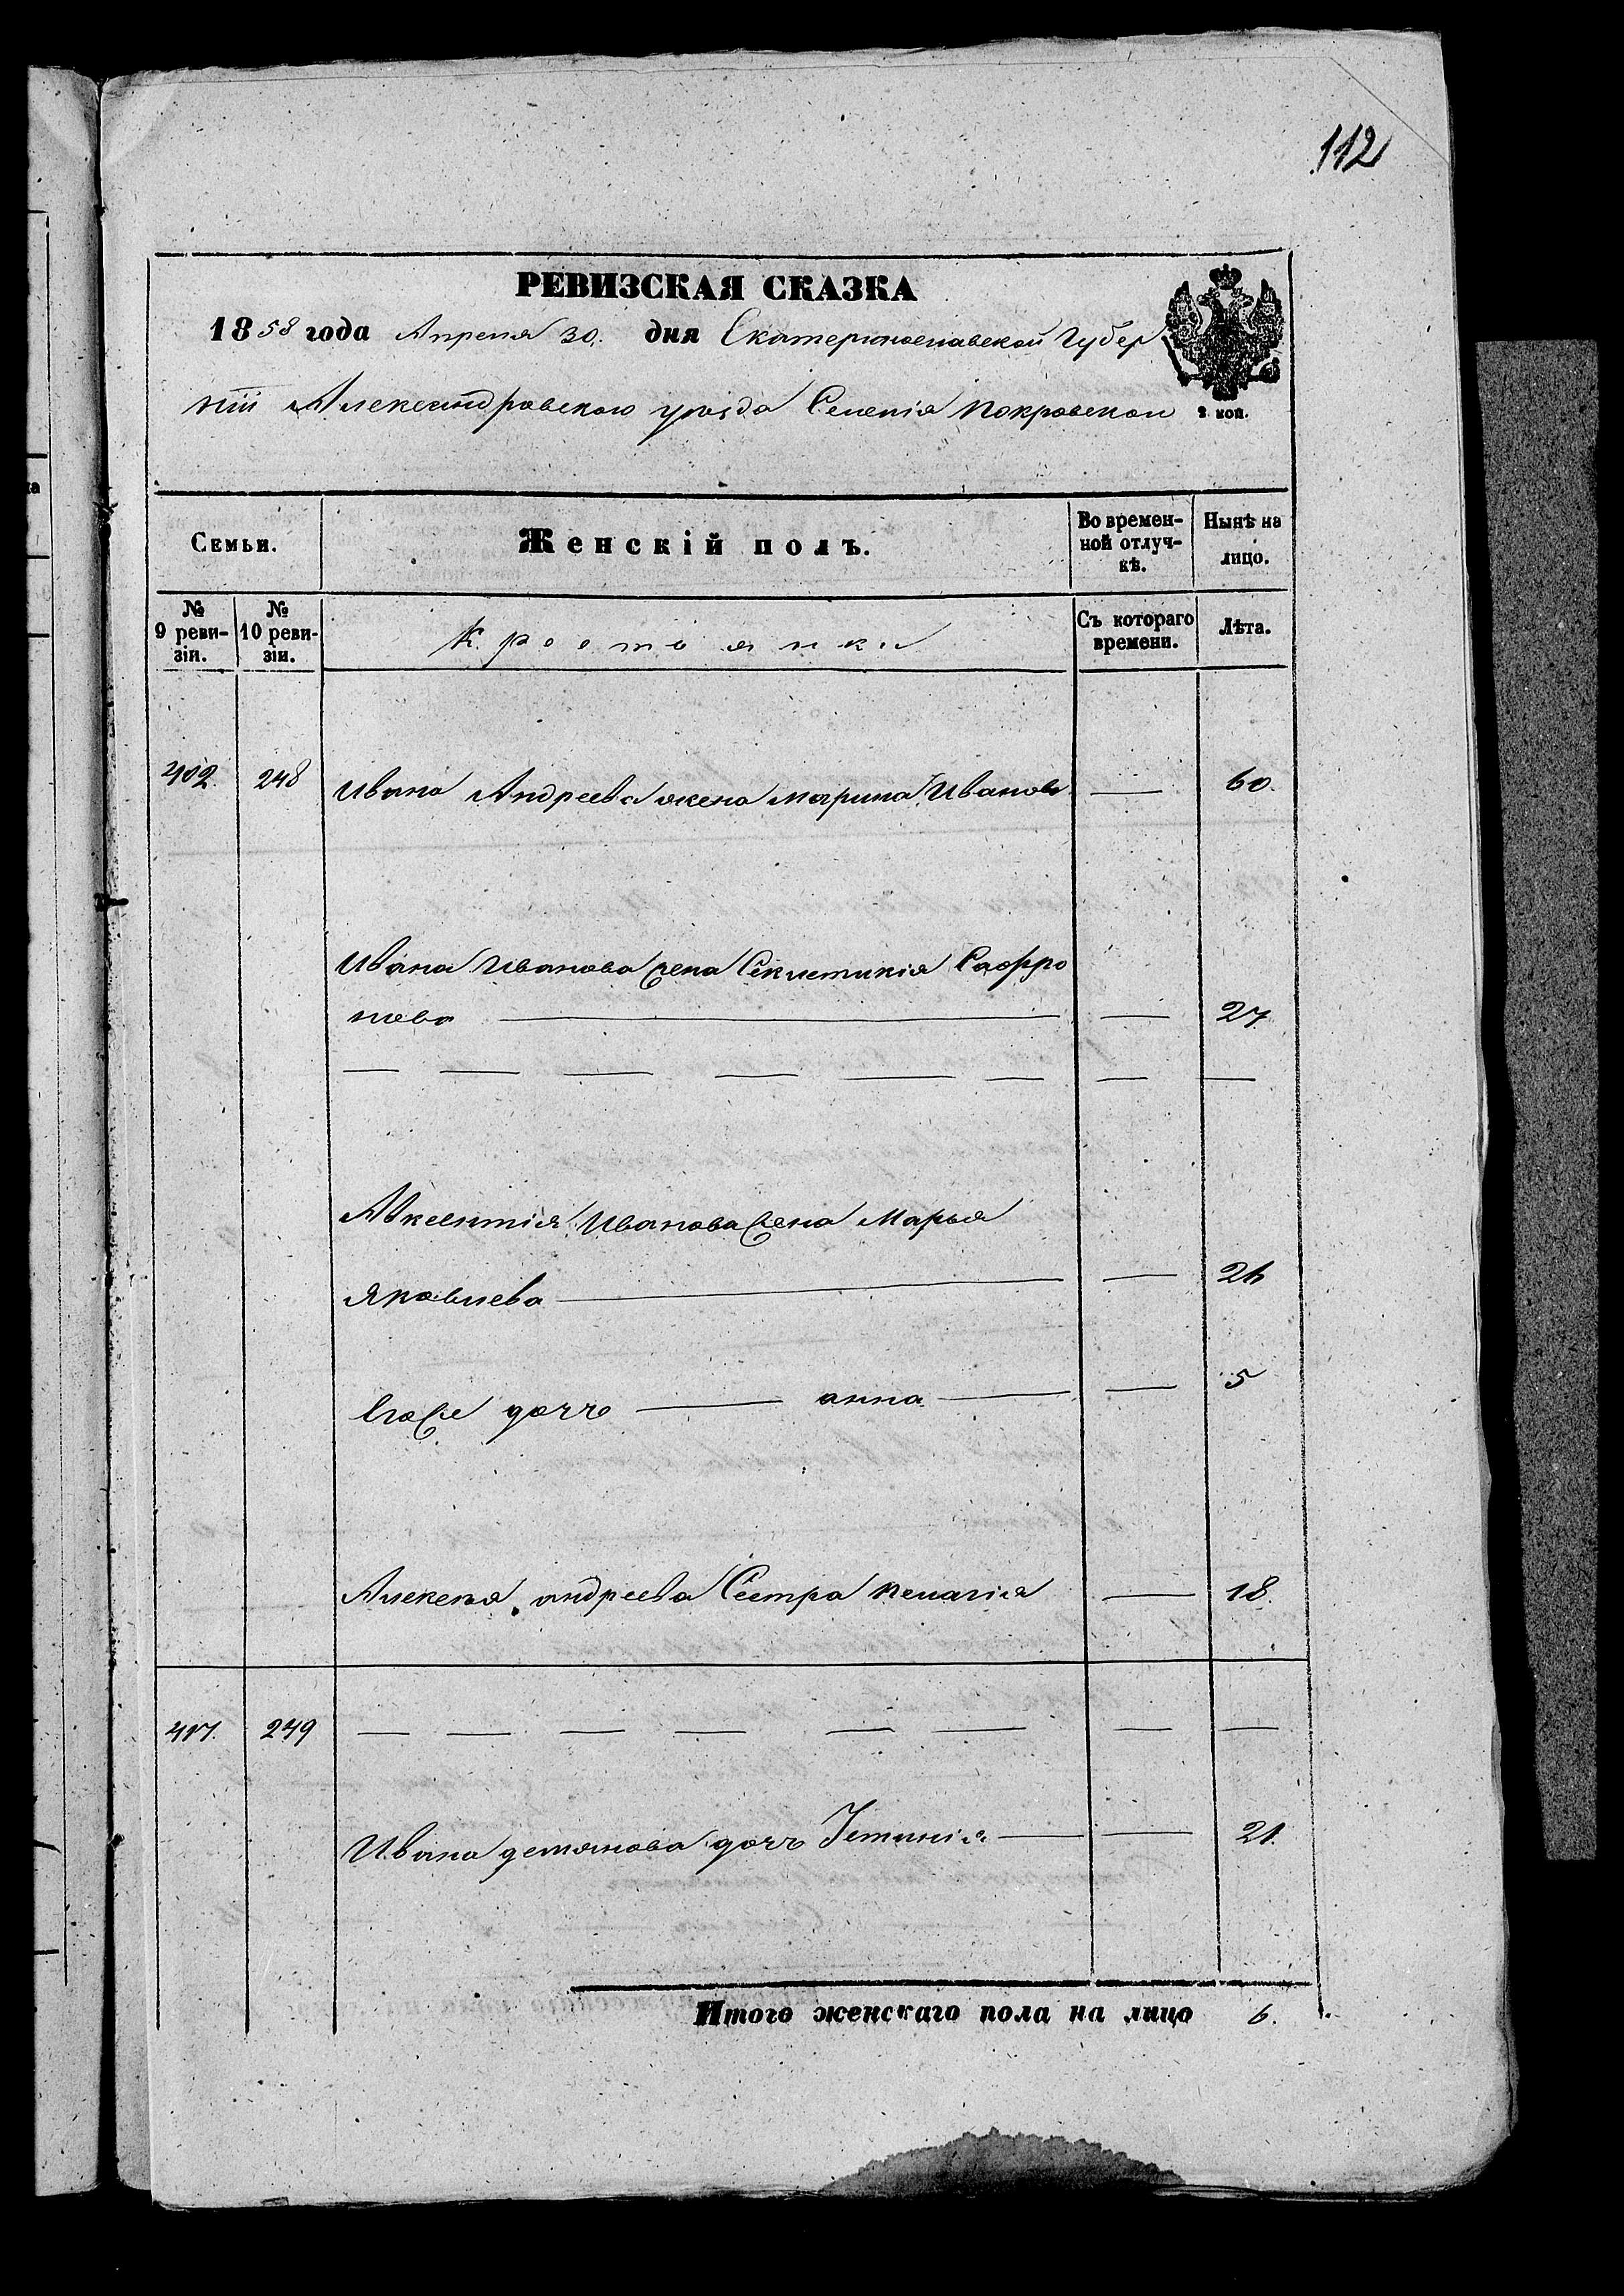 112
РЕВИЗСКАЯ СКАЗКА
1858 года Апреля 30. дня Екатеринославской Губер
нiи Александровскаго уѣзда Селенiя Покровскаго
2 коп.
Семьи.
Женскiй полъ.
Во времен-
ной отлуч-
кѣ.
Нынѣ на
лицо.
№
9 реви-
зiи.
№
10 реви-
зiи.
Крестьянки
Съ котораго
времени.
Лѣта.
402. 248 Ивана Андреева жена Марина Иванова — 60.
Ивана Иванова жена Софро
нова — — 27
— — — — — — — —
Авксентiя Иванова жена Марья
Яковлева — — 26
его же дочь — анна — — 5
Алексея андреева Сестра пелагiя — 18.
417. 249 — — — — — — — —
Ивана демянова дочь Устинiя — — 21.
Итого женскаго пола на лицо 6.